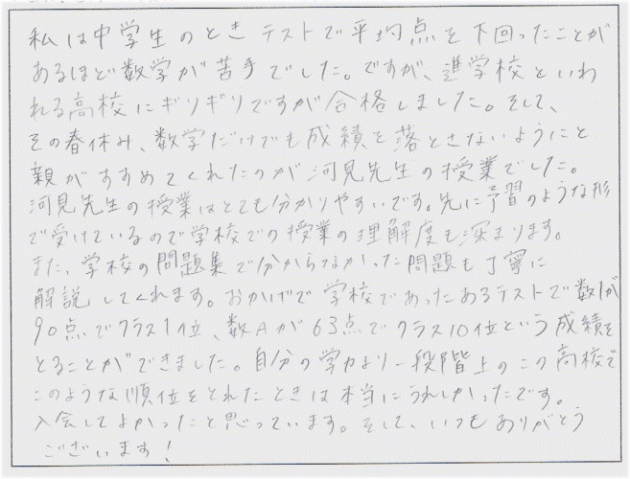 私は中学生のときテストで平均点を下回ったことが
あるほど数学が苦手でした。ですが、進学校といわ
れる高校にギリギリですが合格しました。そして、
その春休み、数学だけでも成績を落とさないようにと
親がすすめてくれたのが河見先生の授業でした。
河見先生の授業はとても分かりやすいです。先に予習のような形
で受けているので学校での授業の理解度も深まります。
また、学校の問題集で分からなかった問題も丁寧に
解説してくれます。おかげで学校であったあるテストで数Iが
90点でクラス1位、数Aが63点でクラス10位という成績を
とることができました。自分の学力より一段階上のこの高校で
このような順位をとれたときは本当にうれしかったです。
入会してよかったと思っています。そして、いつもありがとう
ございます!